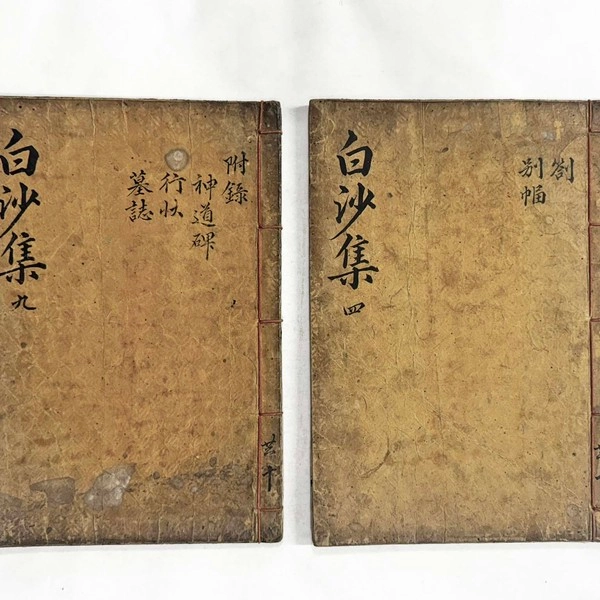 劄
别幅
白沙集 四
共十
附錄
神道碑
行狀
墓誌
白沙集 九